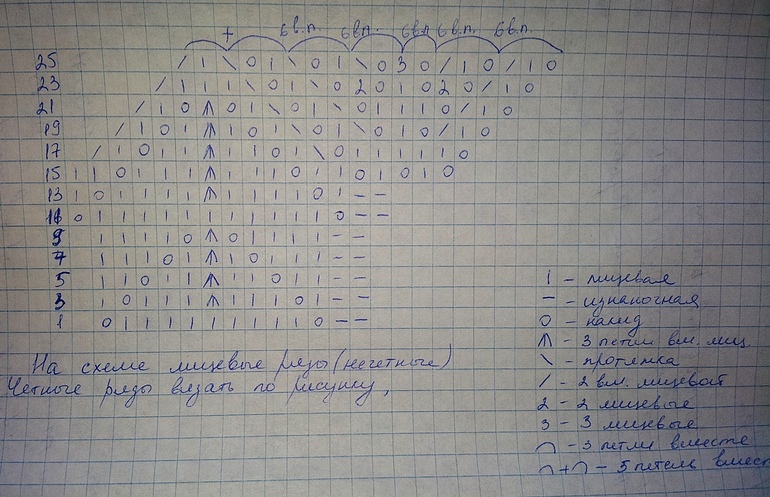 + 6 в.п. 6 вп. 6 вп 6 в.п. 6 в.п.
25 / | \ 0 | \ 0 | \ 0 3 0 / | 0 / | 0
23 / | | | \ 0 | \ 0 | \ 0 2 0 | 0 2 0 / | 0
21 / | 0 ⩚ 0 | \ 0 | \ 0 | | | 0 / | 0
19 / | 0 | ⩚ | 0 | \ 0 | \ 0 | 0 / | 0
17 / | 0 | | ⩚ | | 0 | \ 0 | | | | | 0
15 | | 0 | | | ⩚ | | | 0 | | 0 | 0 | 0
13 | 0 | | | | ⩚ | | | | 0 | – –
11 0 | | | | | | | | | | | 0 – –
9 | | | | 0 ⩚ 0 | | | | – –
7 | | | 0 | ⩚ | 0 | | | – –
5 | | 0 | | ⩚ | | 0 | | – –
3 | 0 | | | ⩚ | | | 0 | – –
1 0 | | | | | | | | | 0 – –
На схеме лицевые ряды (нечетные)
Четные ряды вязать по рисунку,
| - лицевая
– - изнаночная
0 - накид
⩚ - 3 петли вм. лиц.
\ - протяжка
/ - 2 вм. лицевой
2 - 2 лицевые
3 - 3 лицевые
⌒ - 3 петли вместе
⌒+⌒ - 5 петель вмест